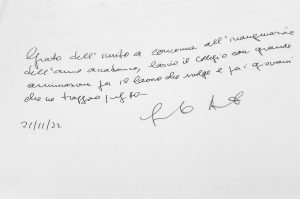 Grato dell'invito a concorrere all'inaugurazione
dell'anno accademico, lascio il collegio con grande
ammirazione per il lavoro che svolge e per i giovani
che ne traggono
21/11/22